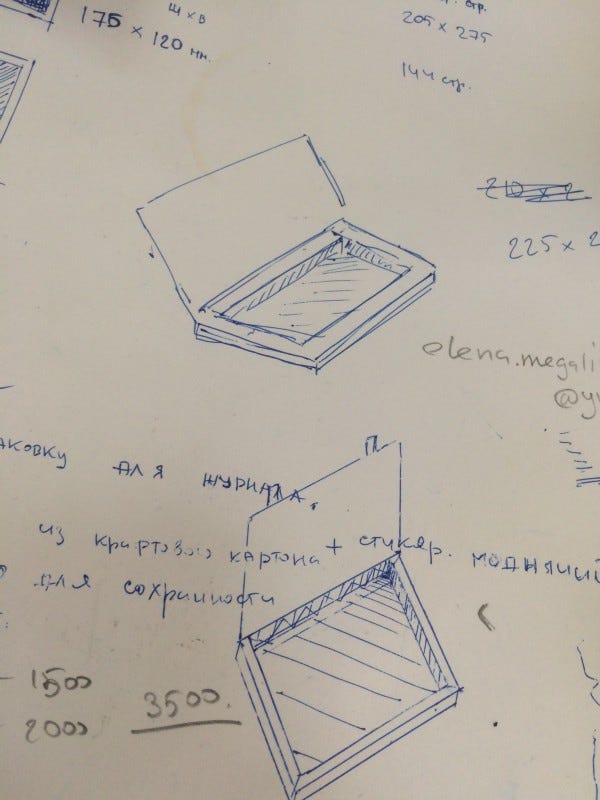 Ш х В
175 х 120 мм.
стр.
205 х 275
144 стр.
225 х 2
elena.megali
@y
аковку для журнала.
из крафтового картона + стикер. модняций
для сохранности
- 1500
- 2000
3500.